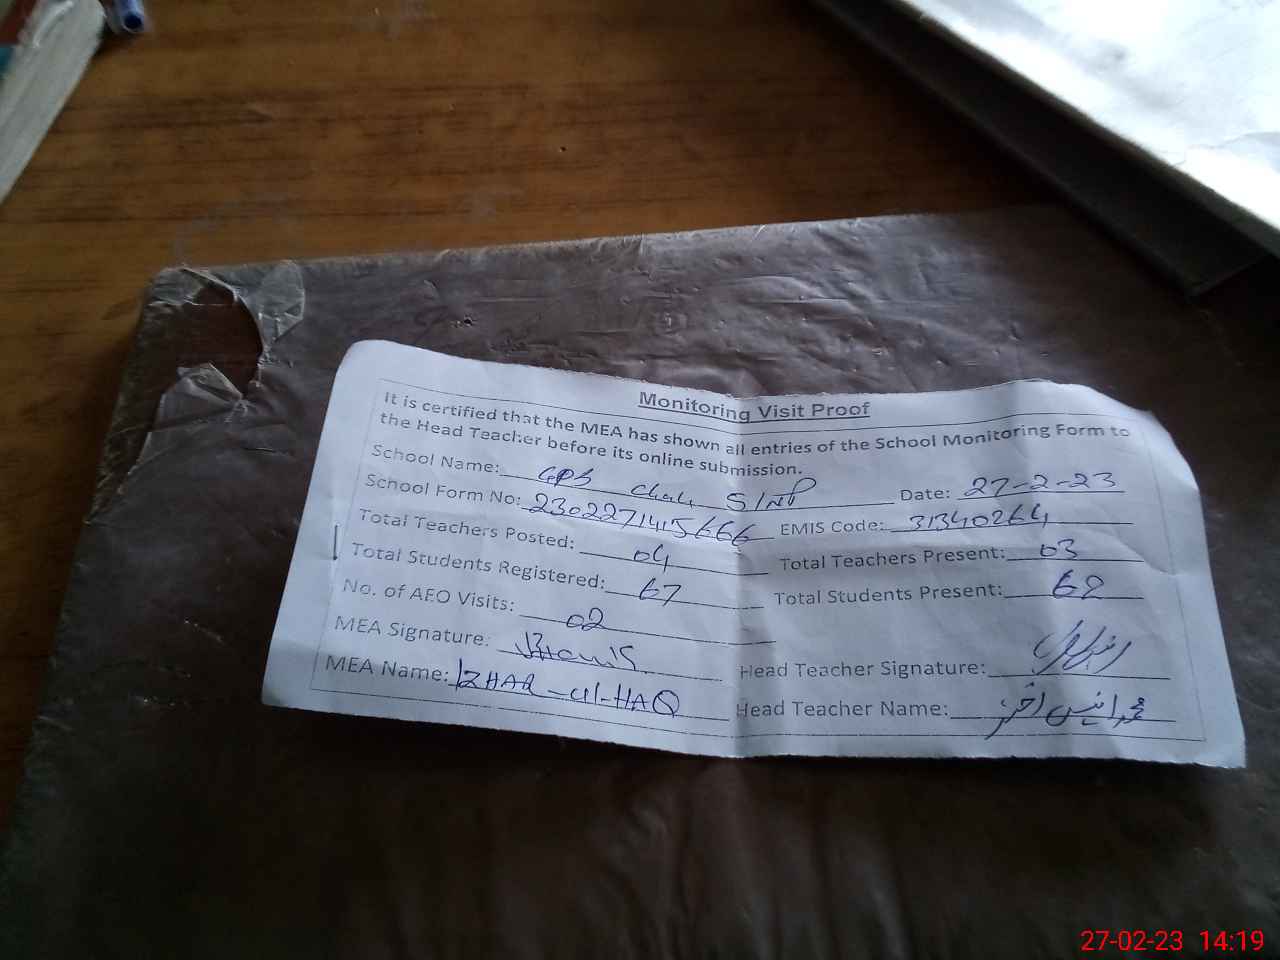 Monitoring Visit Proof
It is certified that the MEA has shown all entries of the School Monitoring Form to
the Head Teacher before its online submission.
School Name: GPS Chak Date: 27-2-23
School Form No: 2302271415666 EMIS Code: 31340264
Total Teachers Posted: 04 Total Teachers Present: 03
Total Students Registered: 67 Total Students Present:
No. of AEO Visits: 02
MEA Signature: Head Teacher Signature:
MEA Name: IZHAR-ul-HAQ Head Teacher Name: محمد انیس اختر
27-02-23 14:19